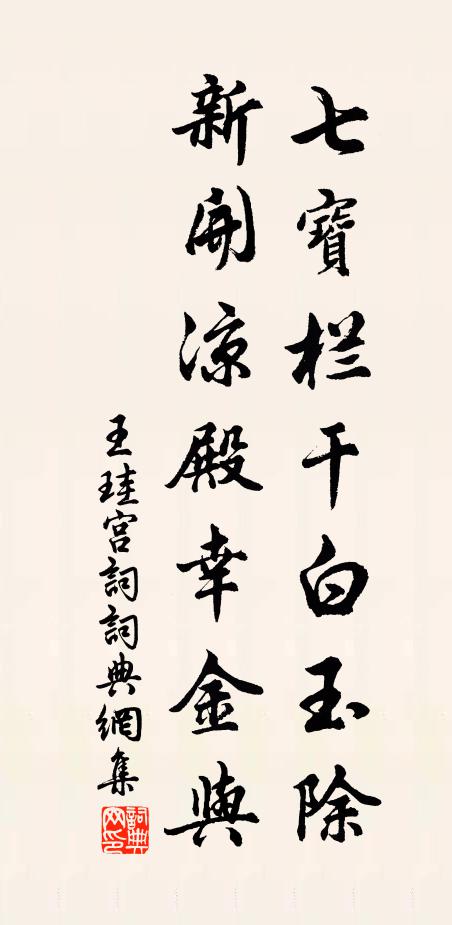 七寶栏干白玉除
新開凉殿幸金輿
王珪宫詞詞典網集
詞典网印